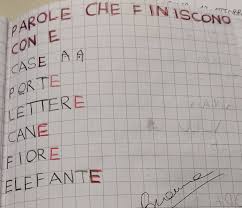 PAROLE CHE FINISCONO
CON E
CASE A A
PORTE
LETTERE
CANE
FIORE
ELEFANTE